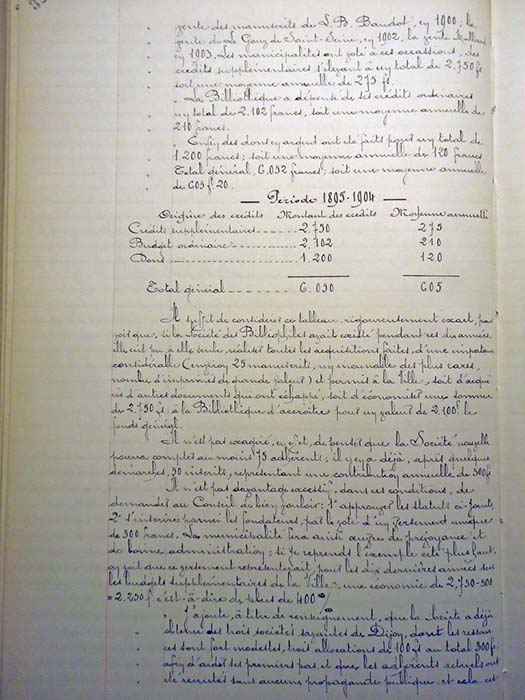 vente des manuscrits de L. B. Baudot, en 1900, la
vente du Le Gouz de Saint-Seine, en 1902, la vente
en 1903. Les municipalités ont voté à ces occasions, des
crédits supplémentaires s'élevant à un total de 2.750 f.
soit une moyenne annuelle de 275 f.
" La Bibliothèque a dépensé de ses crédits ordinaires
un total de 2.102 francs, soit une moyenne annuelle de
210 francs.
" Enfin des dons en argent ont été faits pour un total de
1.200 francs; soit une moyenne annuelle de 120 francs
Total général, 6.052 francs; soit une moyenne annuelle
de 605 f. 20.
— Période 1895-1904 —
Origine des crédits Montant des crédits Moyenne annuelle
Crédits supplémentaires 2.750 275
Budget ordinaire 2.102 210
Dons 1.200 120
Total général 6.050 605
Il suffit de considérer ce tableau, rigoureusement exact, pour
voir que, si la Société des Bibliophiles avait existé pendant ces dix années,
elle eût pu, à elle seule, réaliser toutes les acquisitions faites, d'une importance
considérable (environ 25 manuscrits, un incunable des plus rares,
nombre d'imprimés de grande valeur) et permis à la Ville, soit d'acqué-
rir d'autres documents qui ont échappé, soit d'économiser une somme
de 2.750 fr. à la Bibliothèque d'accroître pour une valeur de 2.100 f. le
fonds général.
Il n'est pas exagéré, en effet, de penser que la Société nouvelle
pourra compter au moins 75 adhérents; il y en a déjà, après quelques
démarches, 50 inscrits, représentant une contribution annuelle de 500 f.
Il n'est pas davantage excessif, dans ces conditions, de
demander au Conseil de bien vouloir: 1° approuver les statuts ci-joints,
2° s'inscrire parmi les fondateurs, par le vote d'un versement unique
de 500 francs. La municipalité fera ainsi œuvre de prévoyance et
de bonne administration; si je reprends l'exemple cité plus haut,
on voit que ce versement représenterait, pour les dix dernières années sur
les budgets supplémentaires de la Ville, une économie de 2,750-500
= 2.250 f. c'est-à-dire de plus de 400 %
" J'ajoute, à titre de renseignement, que la Société a déjà
obtenu des trois sociétés savantes de Dijon, dont les ressour-
ces sont fort modestes, trois allocations de 100 f. au total 300 f.
afin d'aider ses premiers pas, et que les adhérents actuels ont
été recrutés sans aucune propagande publique et cela est